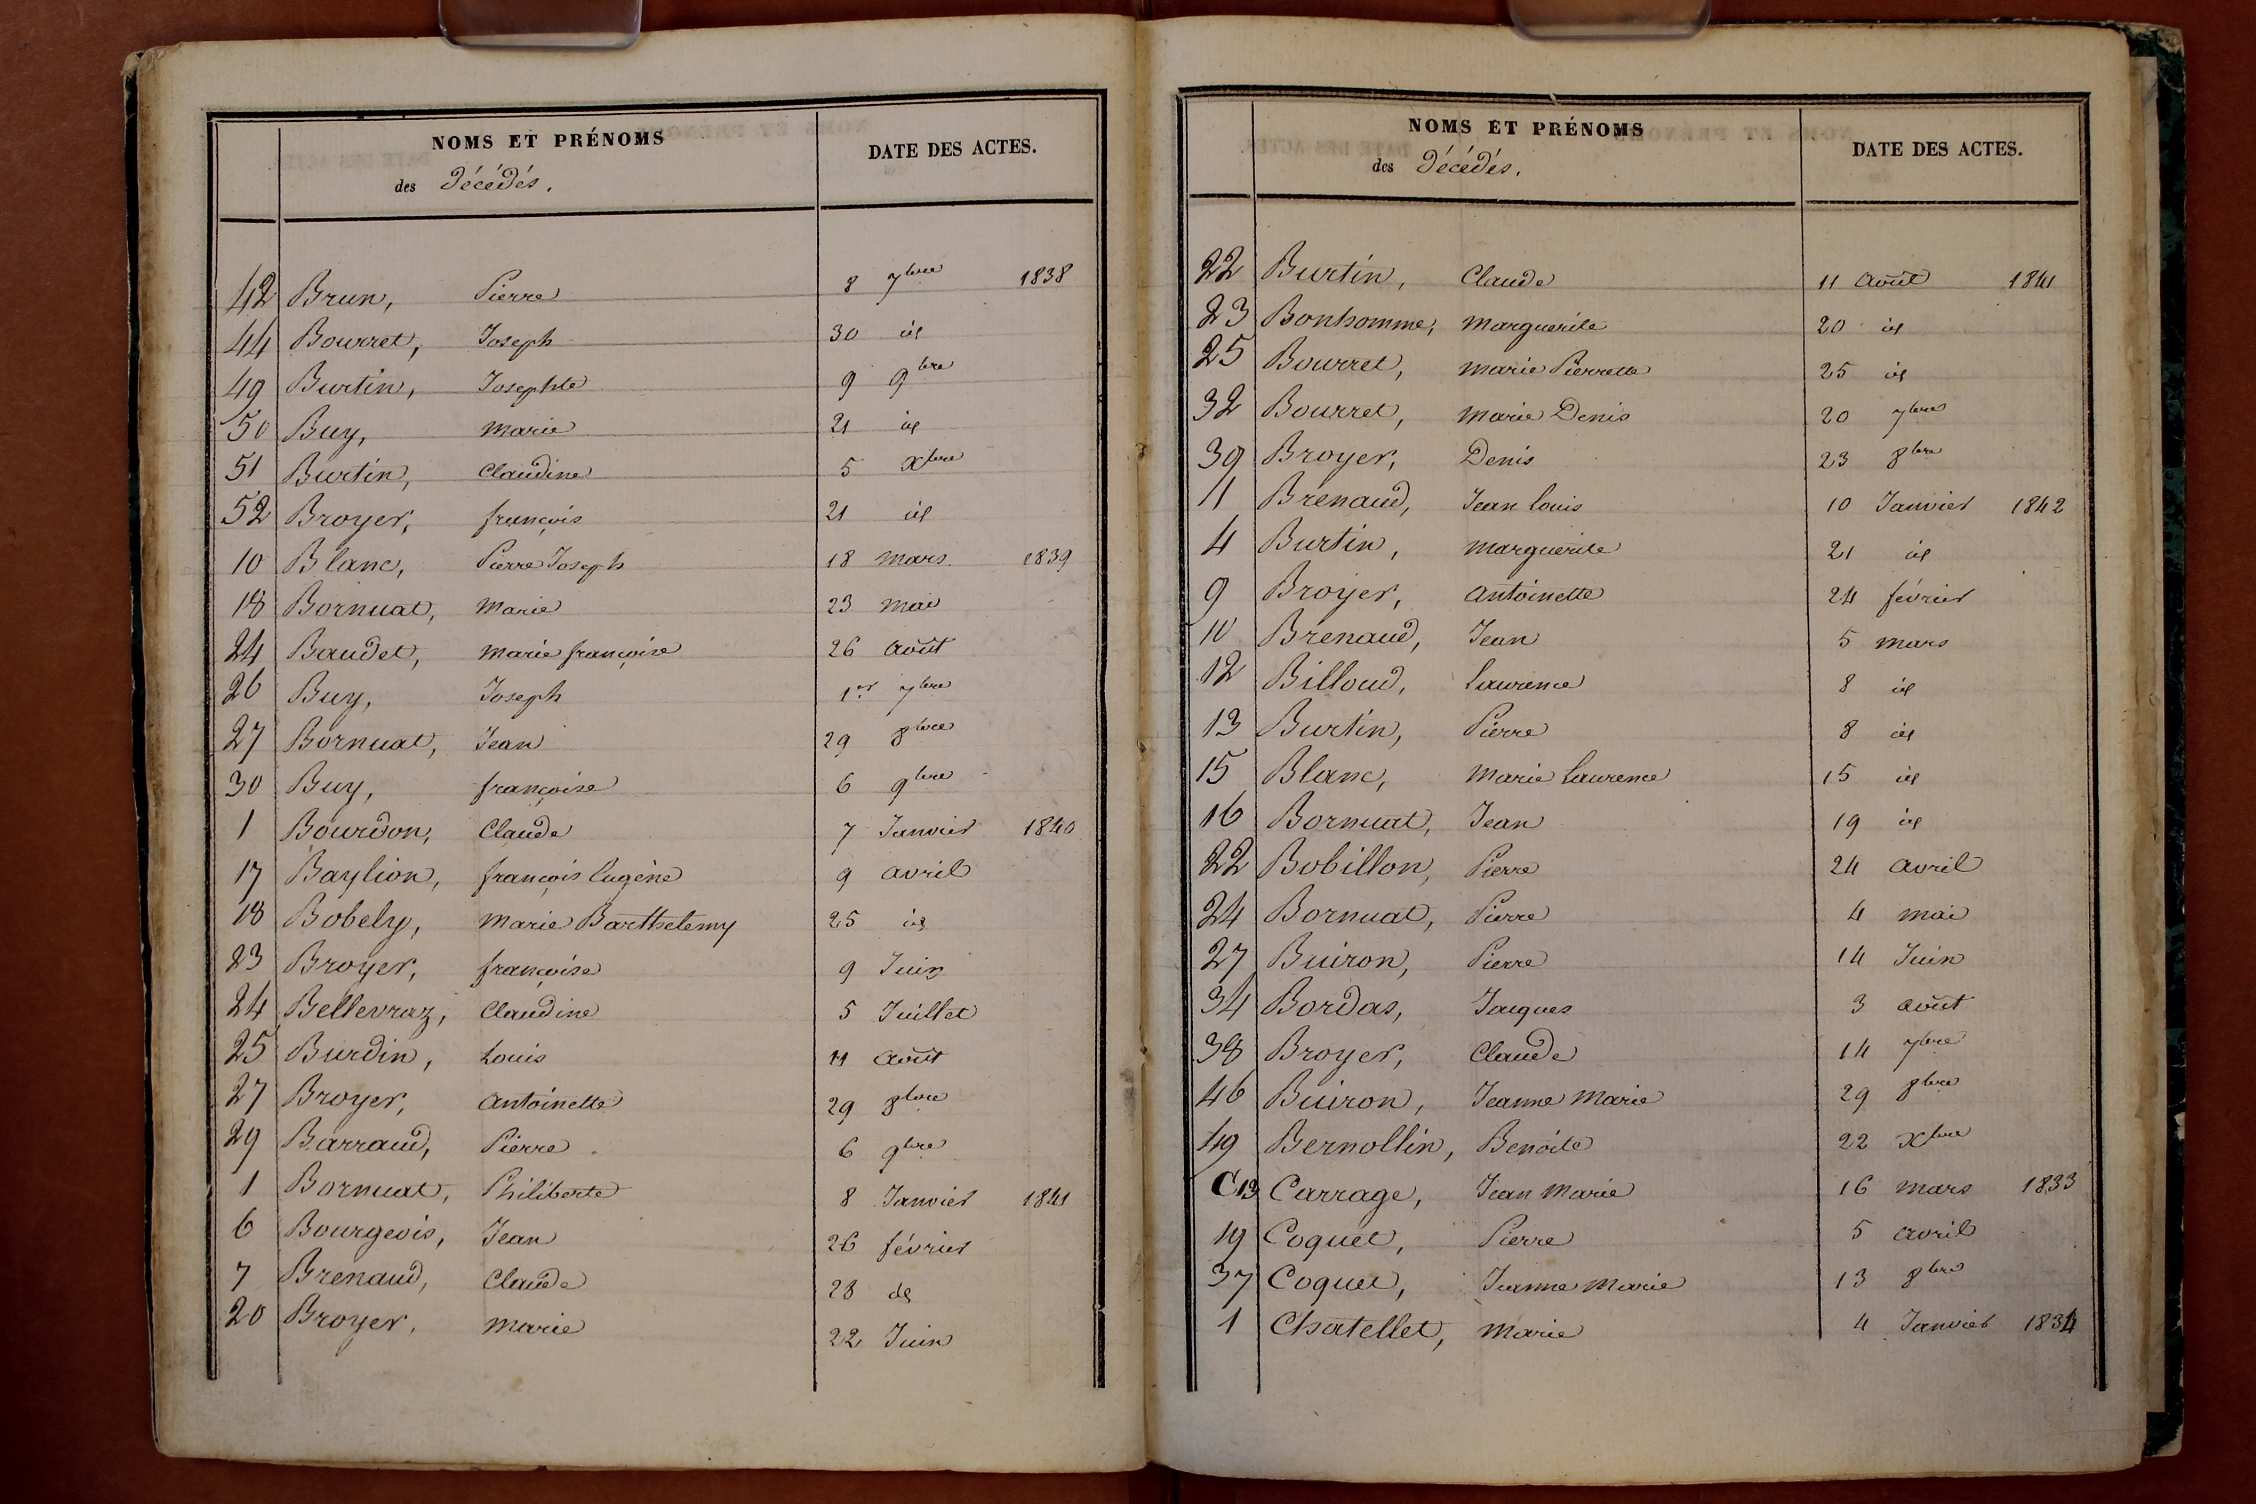 NOMS ET PRÉNOMS
des Décédés.
DATE DES ACTES.
42 Brun, Pierre 8 7bre 1838
44 Bourret, Joseph 30 id
49 Burtin, Josephte 9 9bre
50 Buy, Marie 21 id
51 Burtin, Claudine 5 Xbre
52 Broyer, françois 21 id
10 Blanc, Pierre Joseph 18 Mars 1839
18 Bornuat, Marie 23 Mai
24 Baudet, Marie françoise 26 Août
26 Buy, Joseph 1er 7bre
27 Bornuat, Jean 29 8bre
30 Buy, françoise 6 9bre
1 Bourdon, Claude 7 Janvier 1840
17 Baylion, françois Eugène 9 Avril
18 Bobely, Marie Barthelemy 25 id
23 Broyer, françoise 9 Juin
24 Bellevraz, Claudine 5 Juillet
25 Burdin, Louis 11 Août
27 Broyer, Antoinette 29 8bre
29 Barraud, Pierre 6 9bre
1 Bornuat, Philiberte 8 Janvier 1841
6 Bourgeois, Jean 26 février
7 Brenaud, Claude 28 do
20 Broyer, Marie 22 Juin
NOMS ET PRÉNOMS
des Décédés.
DATE DES ACTES.
22 Burtin, Claude 11 Août 1841
23 Bonhomme, Marguerite 20 id
25 Bourret, Marie Pierrette 25 id
32 Bourret, Marie Denis 20 7bre
39 Broyer, Denis 23 8bre
11 Brenaud, Jean Louis 10 Janvier 1842
4 Burtin, Marguerite 21 id
9 Broyer, Antoinette 24 février
10 Brenaud, Jean 5 Mars
12 Billoud, Laurence 8 id
13 Burtin, Pierre 8 id
15 Blanc, Marie Laurence 15 id
16 Bornuat, Jean 19 id
22 Bobillon, Pierre 24 Avril
24 Bornuat, Pierre 4 Mai
27 Buiron, Pierre 14 Juin
34 Bordas, Jacques 3 Août
38 Broyer, Claude 14 7bre
46 Buiron, Jeanne Marie 29 8bre
49 Bernollin, Benoite 22 Xbre
C 13 Carrage, Jean Marie 16 Mars 1833
19 Coquet, Pierre 5 Avril
37 Coquet, Jeanne Marie 13 8bre
1 Chatellet, Marie 4 Janvier 1834